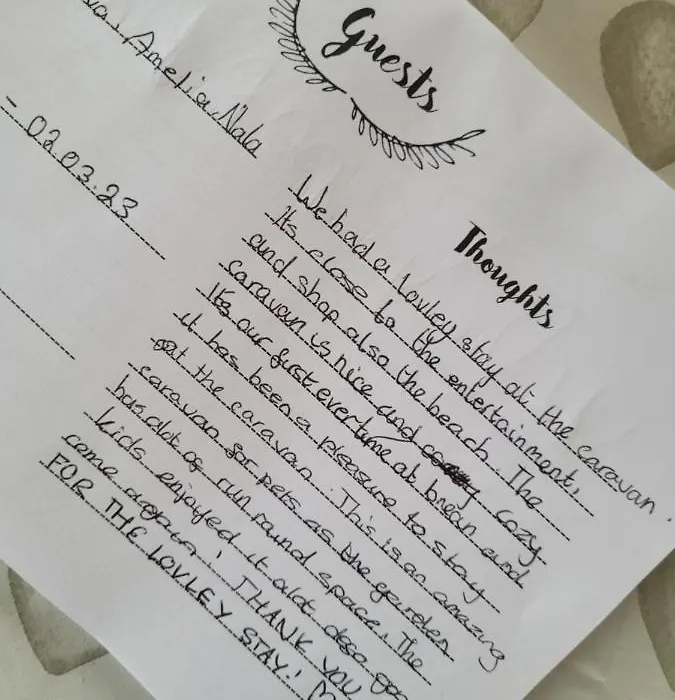 Guests
Amelia, Nala
- 02.03.23
Thoughts
We had a lovley stay at the caravan.
Its close to the entertainment,
and shop also the beach. The
caravan is nice and cozy.
It's our first ever time at brean and
it has been a pleasure to stay
at the caravan. This is an amazing
caravan for pets as the garden
has alot of run round space. The
kids enjoyed it alot
come again! THANK YOU
FOR THE LOVLEY STAY!